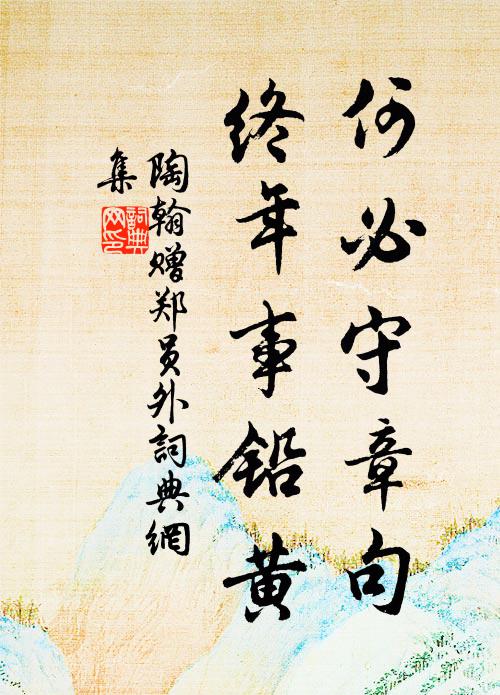 何必守章句
终年事铅黄
陶翰赠郑员外詞典網
集
詞典
网印